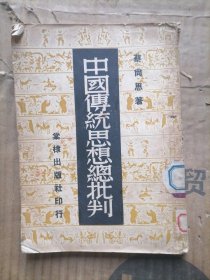 蔡尚思著
中國傳統思想總批判
棠棣出版社印行
贸